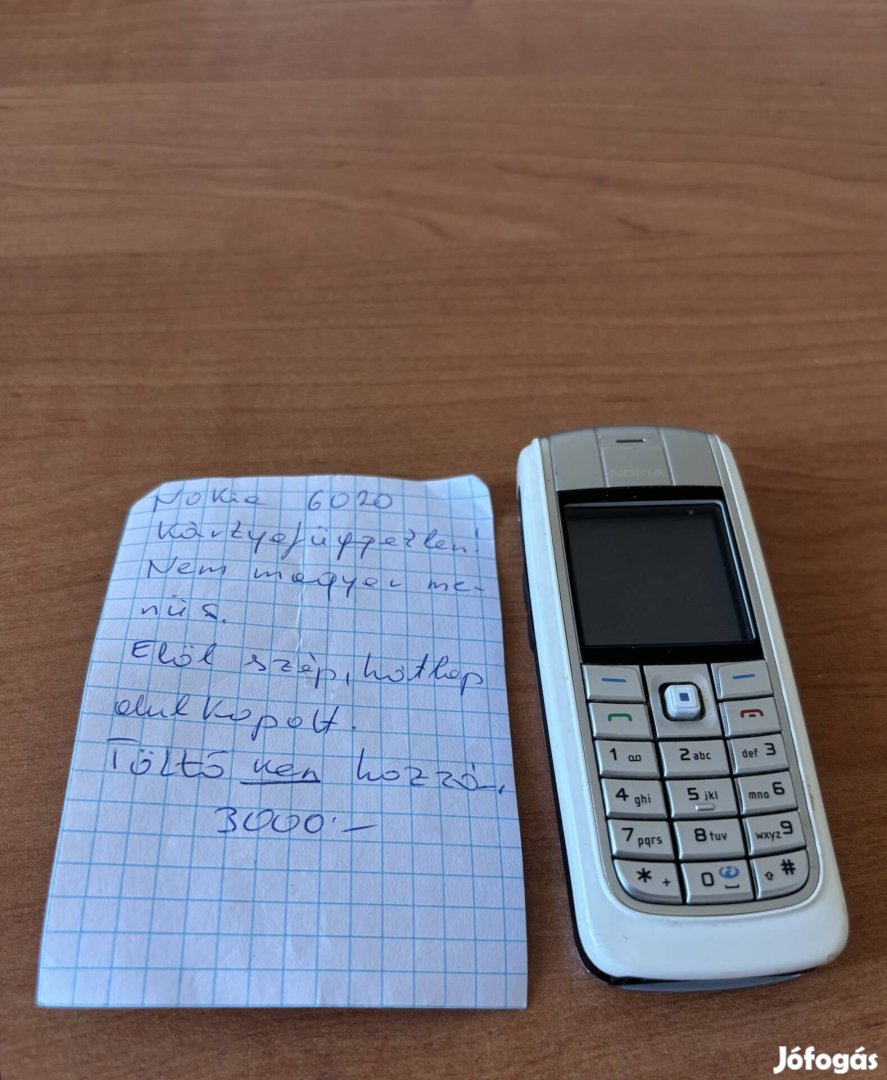 Nokia 6020
Kártyafüggetlen!
Nem magyar me-
nüs.
Elől szép, hátlap
alul kopott.
Töltő van hozzá.
3000.-
NOKIA
1
2 abc
def 3
4 ghi
5 jkl
mno 6
7 pqrs
8 tuv
wxyz 9
* +
0
#
Jófogás